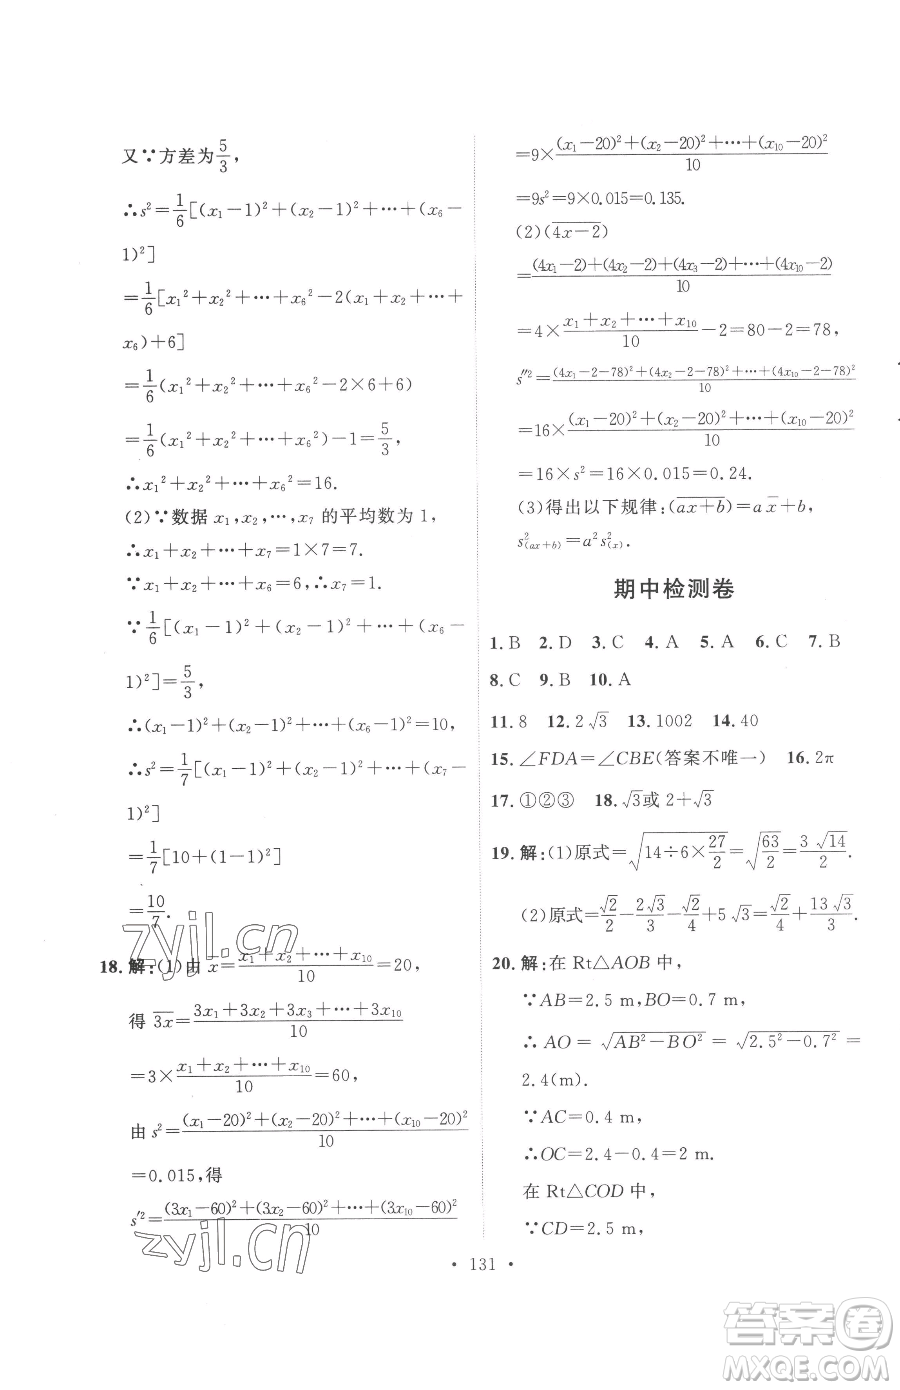 又∵方差为5/3,
∴s²=1/6[(x₁−1)²+(x₂−1)²+⋯+(x₆−
1)²]
=1/6[x₁²+x₂²+⋯+x₆²−2(x₁+x₂+⋯+
x₆)+6]
=1/6(x₁²+x₂²+⋯+x₆²−2×6+6)
=1/6(x₁²+x₂²+⋯+x₆²)−1=5/3,
∴x₁²+x₂²+⋯+x₆²=16.
(2)∵数据 x₁,x₂,⋯,x₇ 的平均数为 1,
∴x₁+x₂+⋯+x₇=1×7=7.
∵x₁+x₂+⋯+x₆=6,∴x₇=1.
∵1/6[(x₁−1)²+(x₂−1)²+⋯+(x₆−
1)²]=5/3,
∴(x₁−1)²+(x₂−1)²+⋯+(x₆−1)²=10,
∴s²=1/7[(x₁−1)²+(x₂−1)²+⋯+(x₇−
1)²]
=1/7[10+(1−1)²]
=10/7.
18. 解:(1)由 x̄=(x₁+x₂+⋯+x₁₀)/10=20,
得 3x̅=(3x₁+3x₂+3x₃+⋯+3x₁₀)/10
=3×(x₁+x₂+⋯+x₁₀)/10=60,
由 s²=((x₁−20)²+(x₂−20)²+⋯+(x₁₀−20)²)/10
=0.015,得
s′²=((3x₁−60)²+(3x₂−60)²+⋯+(3x₁₀−60)²)/10
=9×((x₁−20)²+(x₂−20)²+⋯+(x₁₀−20)²)/10
=9s²=9×0.015=0.135.
(2)(4x−2)̅
=((4x₁−2)+(4x₂−2)+(4x₃−2)+⋯+(4x₁₀−2))/10
=4×(x₁+x₂+⋯+x₁₀)/10−2=80−2=78,
s″²=((4x₁−2−78)²+(4x₂−2−78)²+⋯+(4x₁₀−2−78)²)/10
=16×((x₁−20)²+(x₂−20)²+⋯+(x₁₀−20)²)/10
=16×s²=16×0.015=0.24.
(3)得出以下规律:(ax+b)̅=a x̄+b,
s²₍ax+b₎=a²s²₍x₎.
期中检测卷
1. B 2. D 3. C 4. A 5. A 6. C 7. B
8. C 9. B 10. A
11. 8 12. 2√3 13. 1002 14. 40
15. ∠FDA=∠CBE(答案不唯一) 16. 2π
17. ①②③ 18. √3或 2+√3
19. 解:(1)原式=√(14÷6×27/2)=√(63/2)=3√14/2.
(2)原式=√2/2−2√3/3−√2/4+5√3=√2/4+13√3/3.
20. 解:在 Rt△AOB 中,
∵AB=2.5 m,BO=0.7 m,
∴AO=√(AB²−BO²)=√(2.5²−0.7²)=
2.4(m).
∵AC=0.4 m,
∴OC=2.4−0.4=2 m.
在 Rt△COD 中,
∵CD=2.5 m,
• 131 •
zyjl.cn
zyjl.cn
答案圈
MXQE.COM